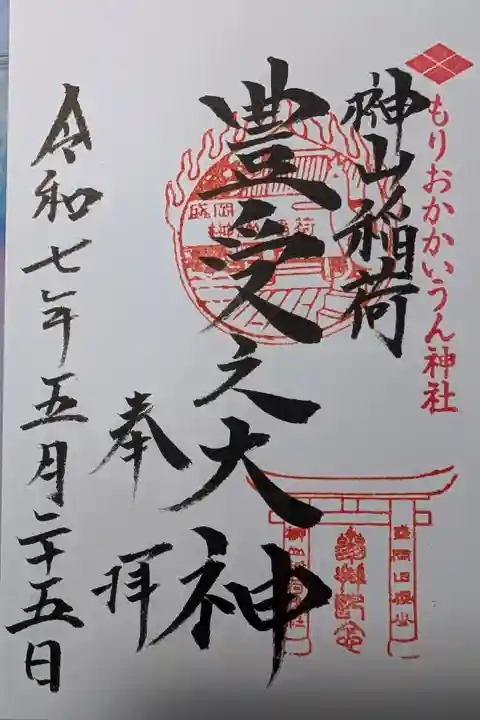 もりおかかいうん神社
榊山稲荷
豊受之大神
奉拝
令和七年五月二十五日
盛岡
榊山稲荷